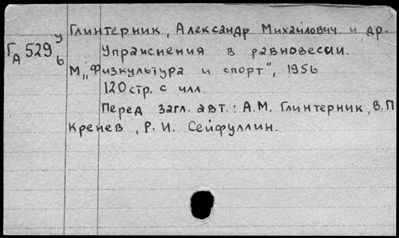 Глинтерник, Александр Михайлович и др.
ГА 529 у б
Упраиснения в равновесии.
М„Физкультура и спорт", 1956
120 стр. с илл.
Перед загл. авт.: А.М. Глинтерник, В.П
Кренев, Р. И. Сейфуллин.